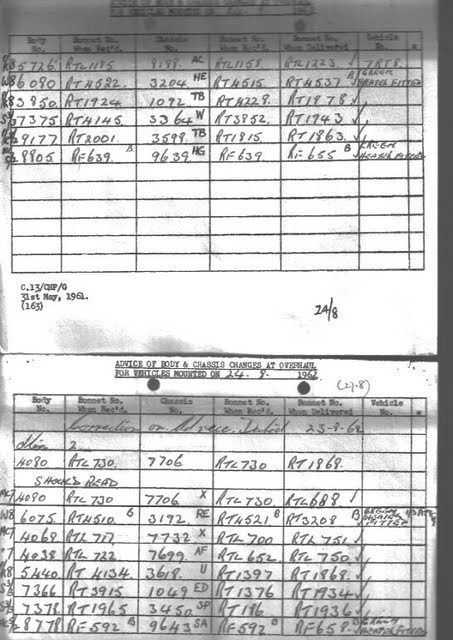 ADVICE OF BODY & CHASSIS CHANGES AT OVERHAUL
FOR VEHICLES MOUNTED ON
Body No. Bonnet No. When Rec'd. Chassis No. Bonnet No. When Rec'd. Bonnet No. When Delivered Vehicle No.
5726 RTL1195 8188 AC RTL1158 RTL1223 ✓ 7RT8
W8 6080 RT4522 3204 HE RT4515 RT4537 B GREEN HEATER FITTED
3850 RT1924 1092 TB RT4228 RT1978 ✓
7375 RT4145 3364 W RT3952 RT1943 ✓
9177 RT2001 3598 TB RT1815 RT1863 ✓
8805 RF639 B 9639 HG RF639 RF655 B GREEN HEATER FITTED
C.13/CHP/G
31st May, 1961.
(163)
24/8
ADVICE OF BODY & CHASSIS CHANGES AT OVERHAUL
FOR VEHICLES MOUNTED ON 24. 8. 1962
(27.8)
Body No. Bonnet No. When Rec'd. Chassis No. Bonnet No. When Rec'd. Bonnet No. When Delivered Vehicle No.
Correction on Advice dated 23-8-62
Item 2
4090 RTL730 7706 RTL730 RT1868
SHOULD READ
4090 RTL730 7706 X RTL730 RTL688 ✓
W8 6075 RT4510 B 3192 RE RT4521 B RT3208 B GREEN HEATER FITTED
4068 RTL717 7732 X RTL700 RTL751 ✓
4038 RTL722 7699 AF RTL652 RTL750 ✓
5440 RT4134 3618 U RT1397 RT1868 ✓
7366 RT3915 1049 ED RT1376 RT1934 ✓
7378 RT1965 3450 SP RT186 RT1936 ✓
8778 RF592 B 9643 SA RF592 B RF658 B GREEN HEATER FITTED